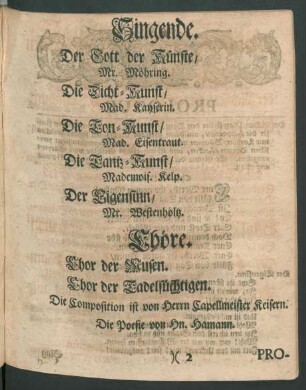 Singende.
Der Gott der Künste/
Mr. Möhring.
Die Ticht-Kunst/
Mad. Kayserin.
Die Ton-Kunst/
Mad. Eisentraut.
Die Tantz-Kunst/
Mademois. Kelp.
Der Eigensinn/
Mr. Westenholtz.
Chöre.
Chor der Musen.
Chor der Tadelsüchtigen.
Die Composition ist von Herrn Capellmeister Keisern.
Die Poesie von Hn. Hamann.
)( 2 PRO-